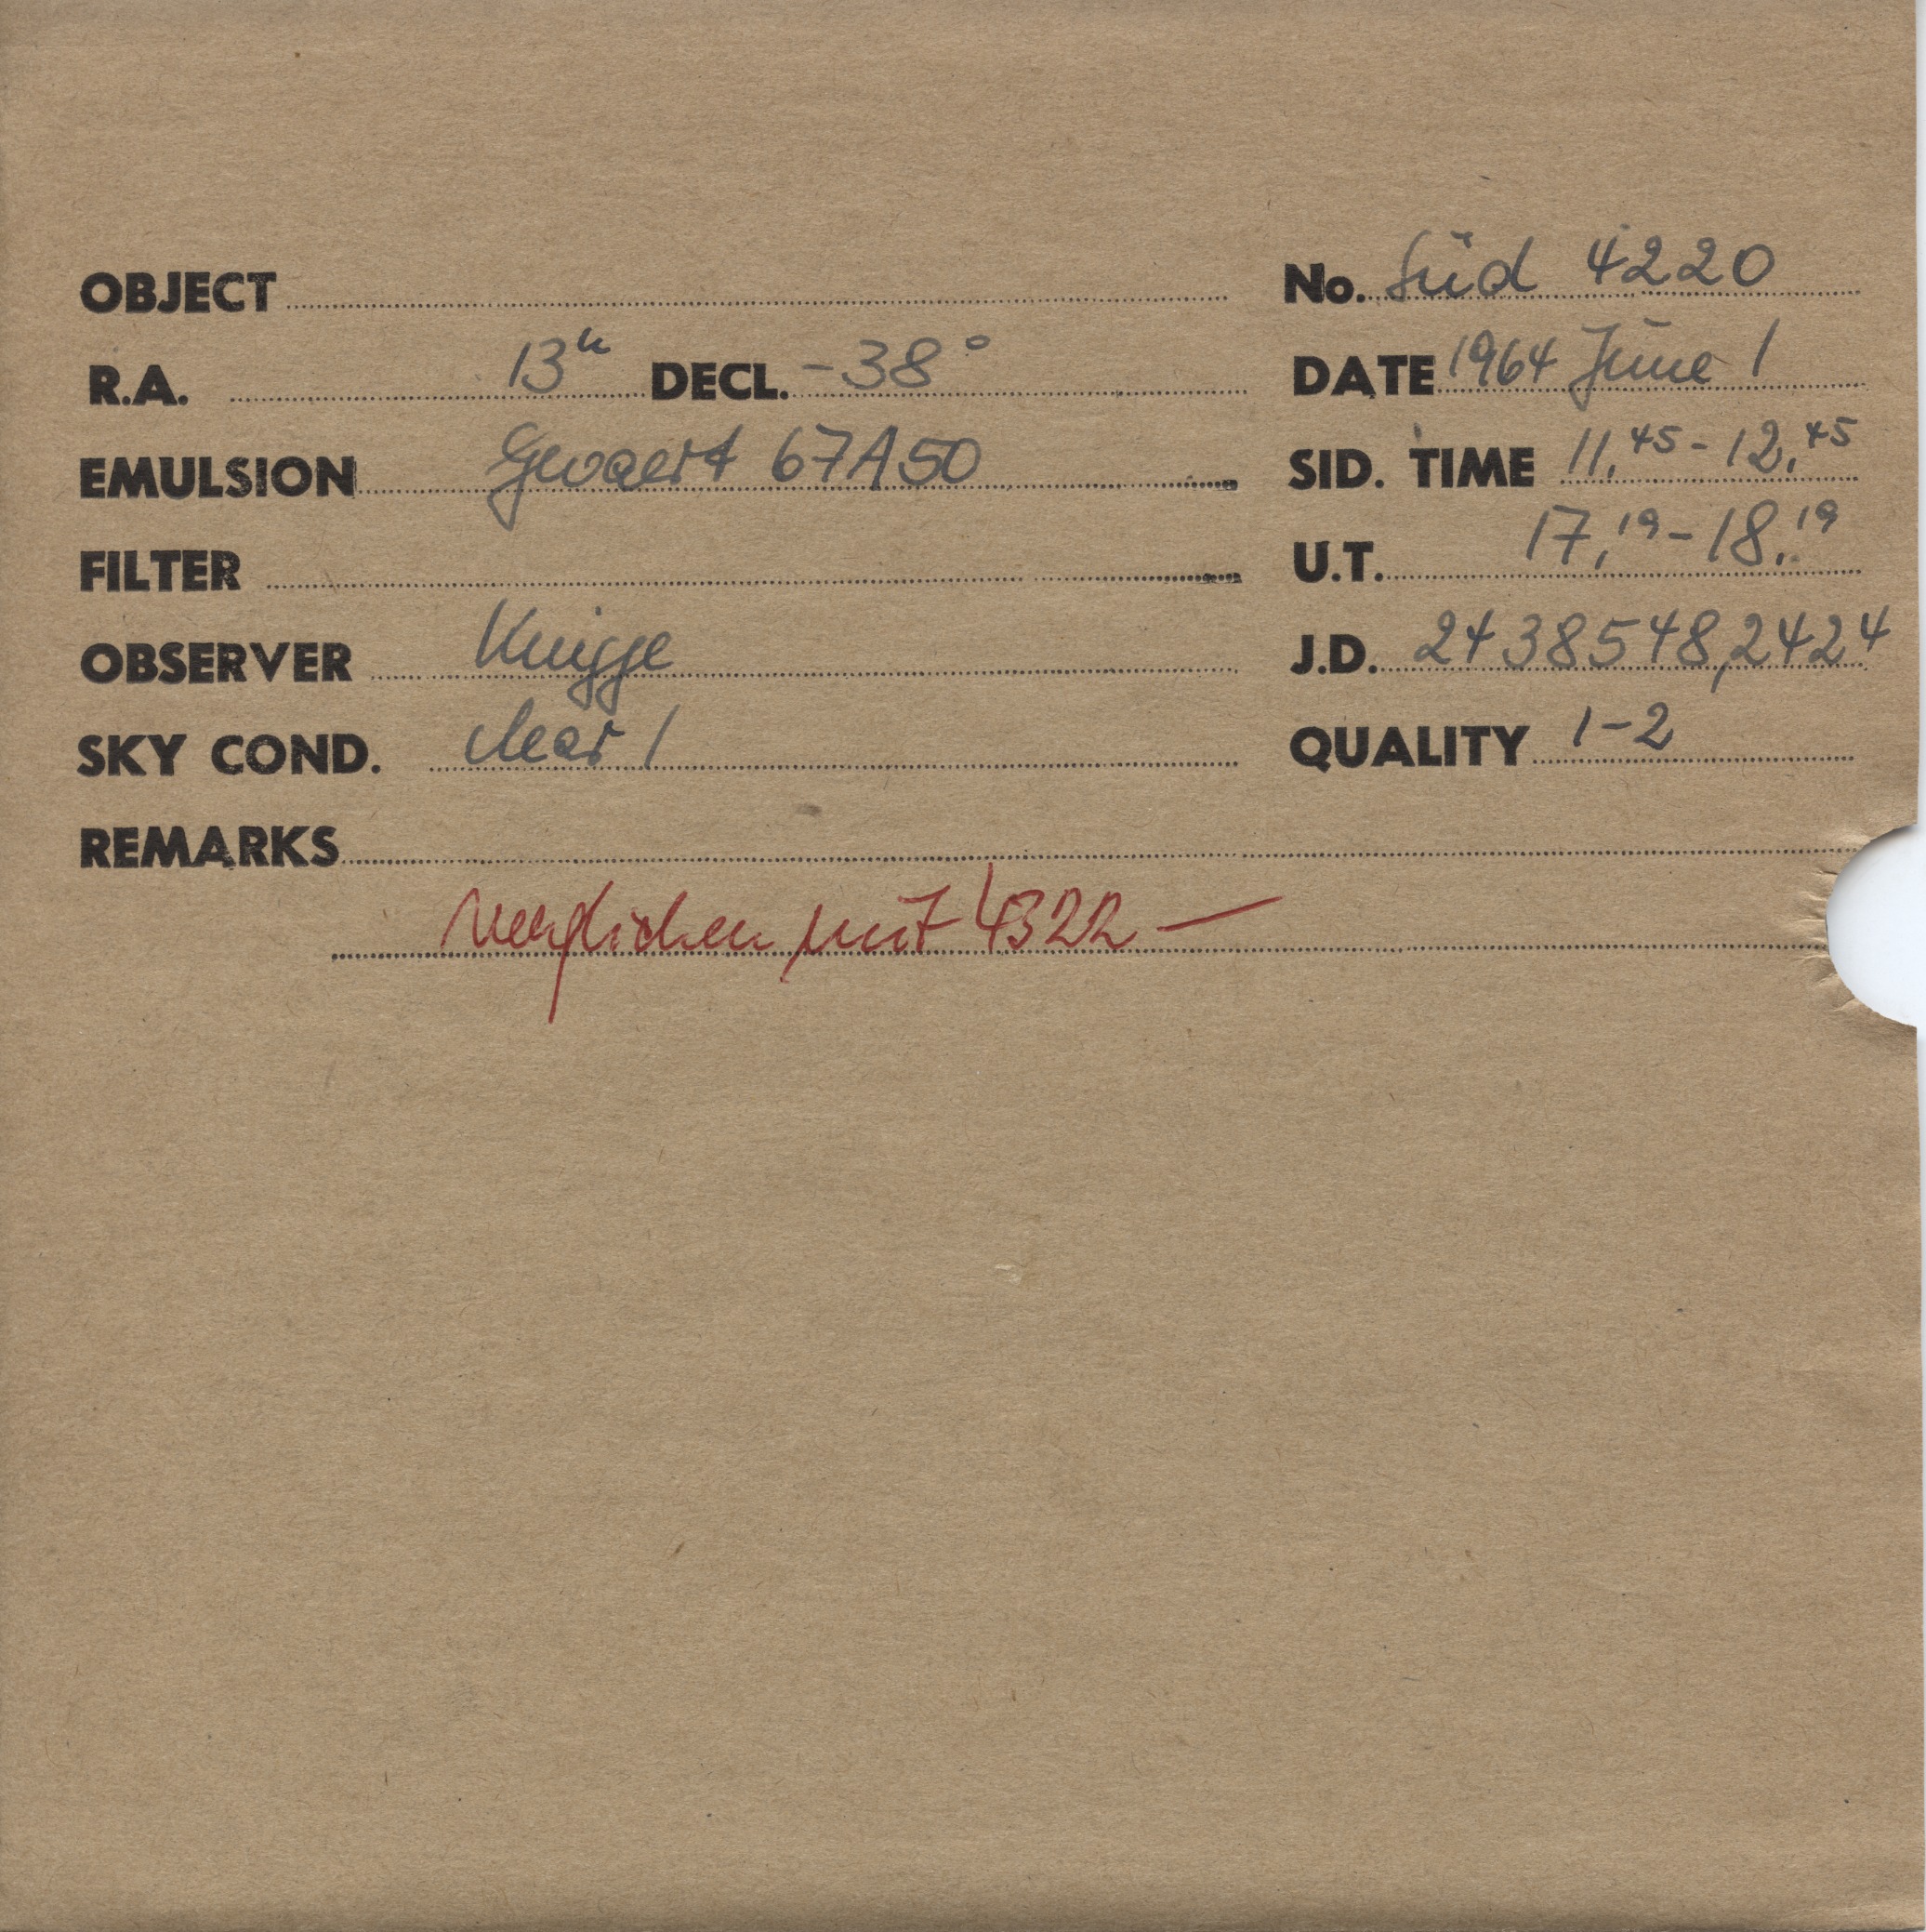 OBJECT No. Süd 4220
R.A. 13h DECL. -38° DATE 1964 June 1
EMULSION Gevaert 67A50 SID. TIME 11,45 - 12,45
FILTER U.T. 17,19 - 18,19
OBSERVER Knigge J.D. 2438548,2424
SKY COND. clear 1 QUALITY 1-2
REMARKS
verglichen mit 4322 —